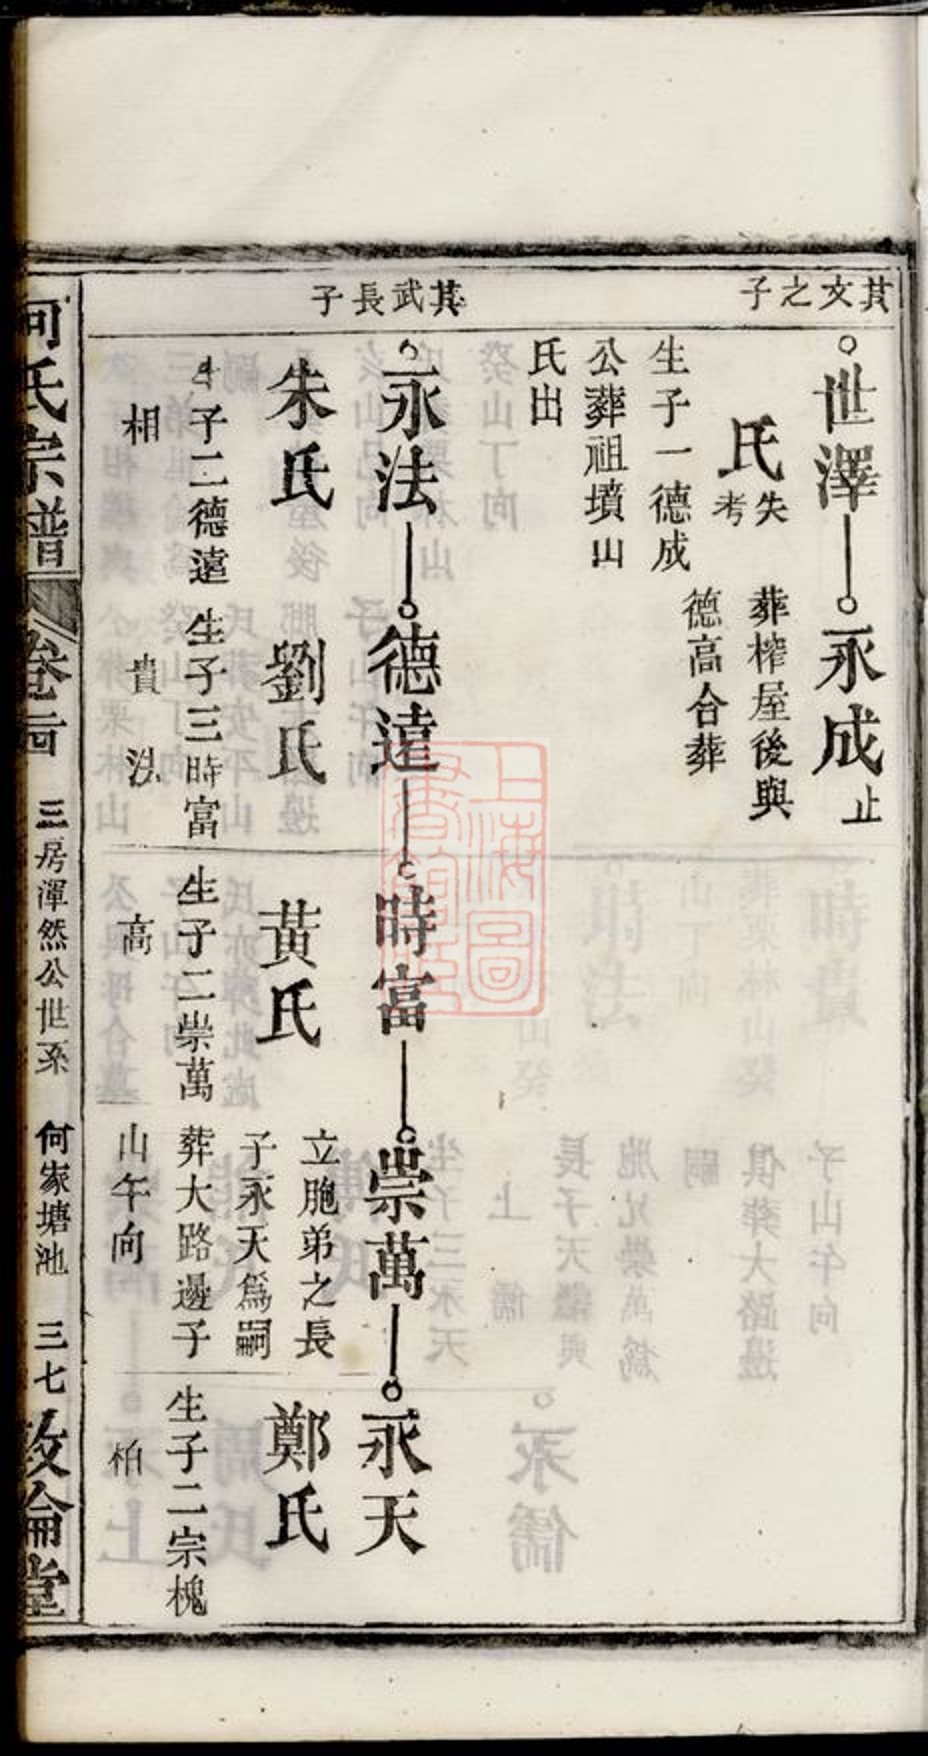 其文之子
世澤
氏失考
生子一德成
公葬祖墳山
氏出
永成止
葬榨屋後與
德高合葬
其武長子
永法
朱氏
子二德遠
相
德遠
劉氏
生子三時富
貴
法
時富
黃氏
生子二崇萬
高
崇萬
立胞弟之長
子永天爲嗣
葬大路邊子
山午向
永天
鄭氏
生子二宗槐
柏
何氏宗譜
卷
三房渾然公世系
何家塘池
三七
敦倫堂
上海圖書館藏